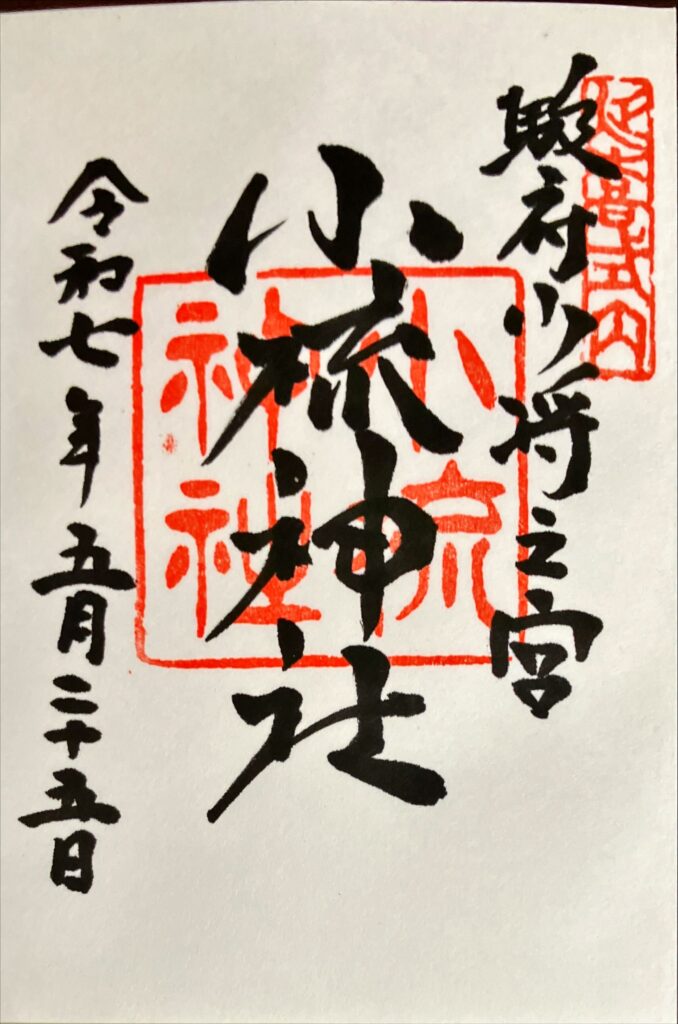 延喜式内
駿府少将之宮
小梳神社
小梳
神社
令和七年五月二十五日